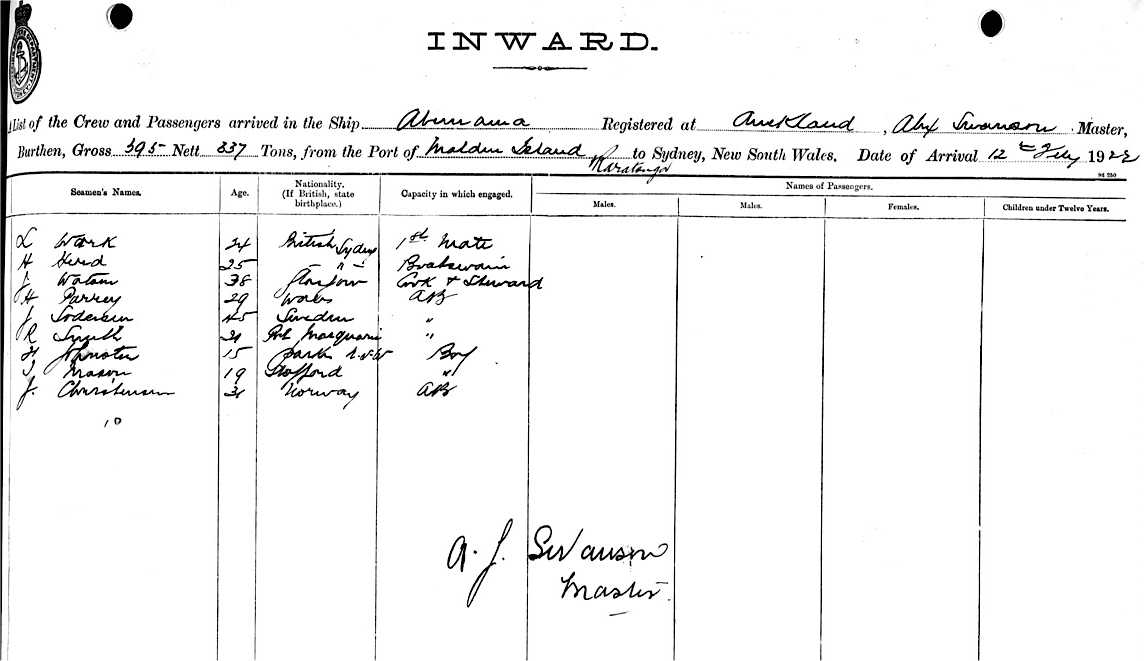 INWARD.
List of the Crew and Passengers arrived in the Ship Abemama Registered at Auckland, Alex Swanson Master,
Burthen, Gross 395 Nett 337 Tons, from the Port of Malden Island to Sydney, New South Wales. Date of Arrival 12th Feby 1922
Raratonga
94 250
Seamen's Names. Age. Nationality. (If British, state birthplace.) Capacity in which engaged. Names of Passengers.
Males. Males. Females. Children under Twelve Years.
L Wark 24 British Sydney 1st Mate
H Herd 25 " " Boatswain
J Watson 38 Glasgow Cook & Steward
H Parrey 29 Wales AB
J 45 Sweden "
R Smith Port Macquarie "
Johnston 15 N.S.W Boy
Mason 19 Stafford "
J. Christensen Norway AB
10
A. J. Swanson
Master